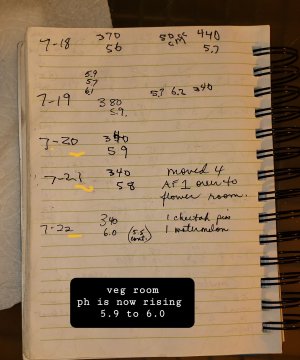 7-18 370 50 cc 440
56 cm 5.7
5.9
5.7
6.1
7-19 380 5.7 6.2 340
5.9
7-20
5.9
7-21 340 moved 4
5.8 AF 1 over to
flower room.
7-22 340 1 cheetah piss
6.0 (5.5 cont.) 1 watermelon
veg room
ph is now rising
5.9 to 6.0